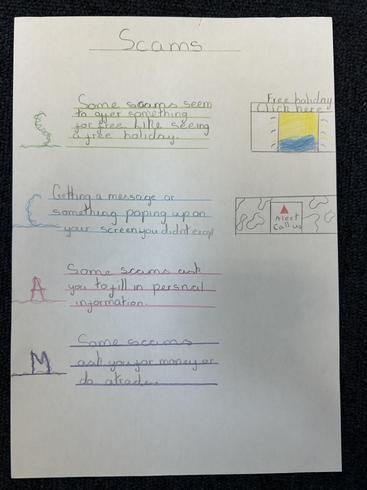 Scams
Some scams seem
to offer something
for free like seeing
a free holiday.
S
Free holiday
Click here
Getting a message or
something poping up on
your screen you didnt
C
Alert
Call us
Some scams ask
you to fill in persnal
information.
A
Some scams
ask you for money or
do a trade.
M